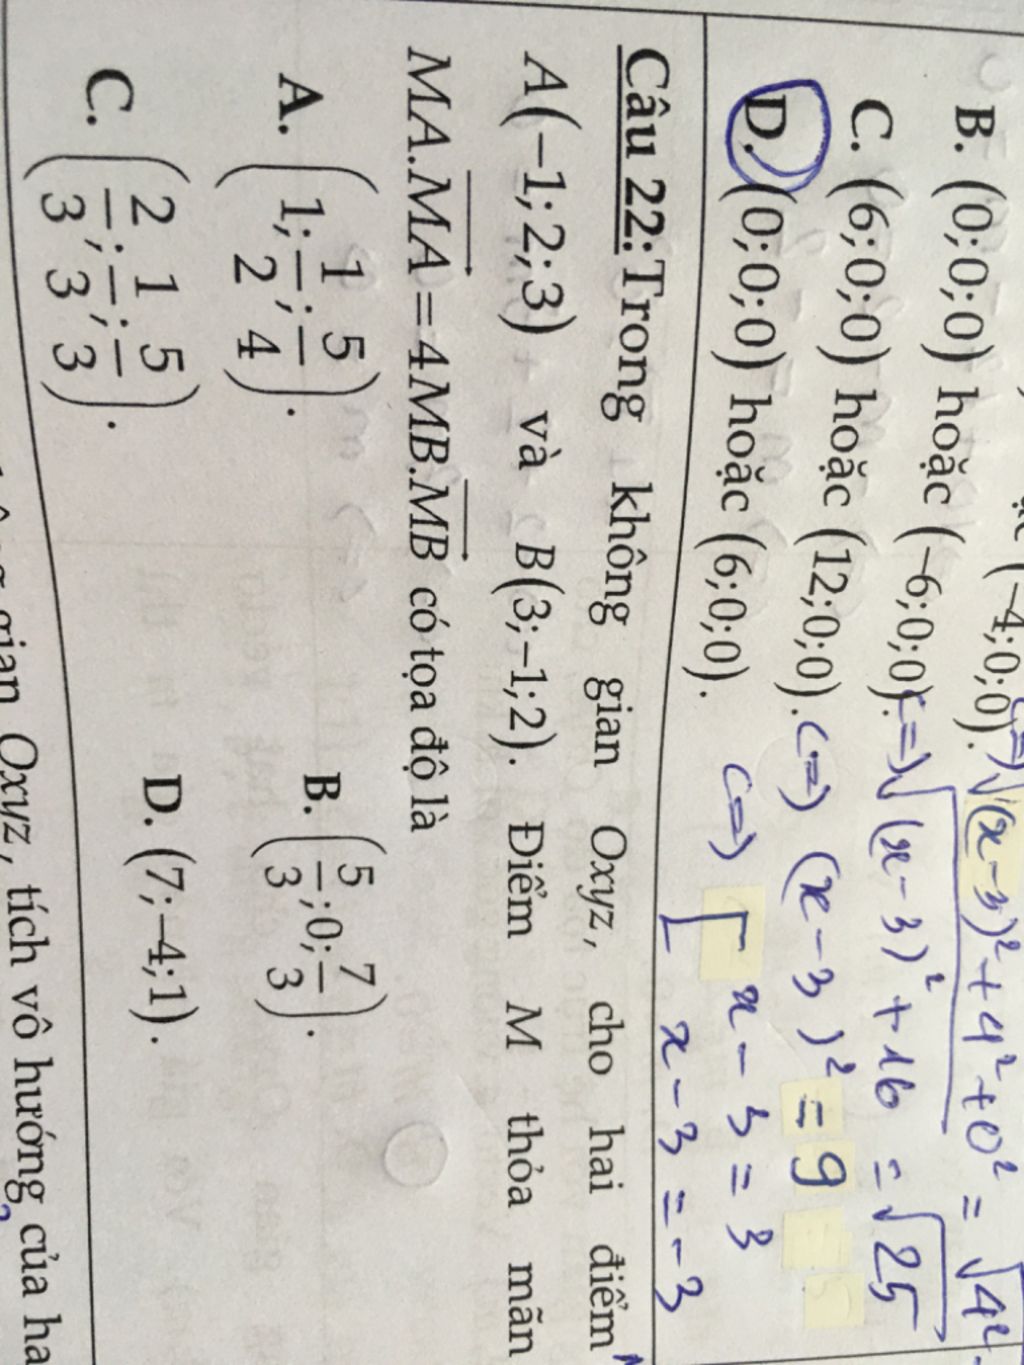 (−4;0;0).
<=> √(x−3)²+4²+0² = √4²
B. (0;0;0) hoặc (−6;0;0).
<=> √(x−3)²+16 = √25
C. (6;0;0) hoặc (12;0;0).
<=> (x−3)² = 9
D. (0;0;0) hoặc (6;0;0).
<=> [ x−3=3
x−3=−3
Câu 22: Trong không gian Oxyz, cho hai điểm
A(−1;2;3) và B(3;−1;2). Điểm M thỏa mãn
MA.\overrightarrow{MA} = 4MB.\overrightarrow{MB} có tọa độ là
A. (1; 1/2; 5/4). B. (5/3; 0; 7/3).
C. (2/3; 1/3; 5/3). D. (7;−4;1).
gian Oxyz, tích vô hướng của ha